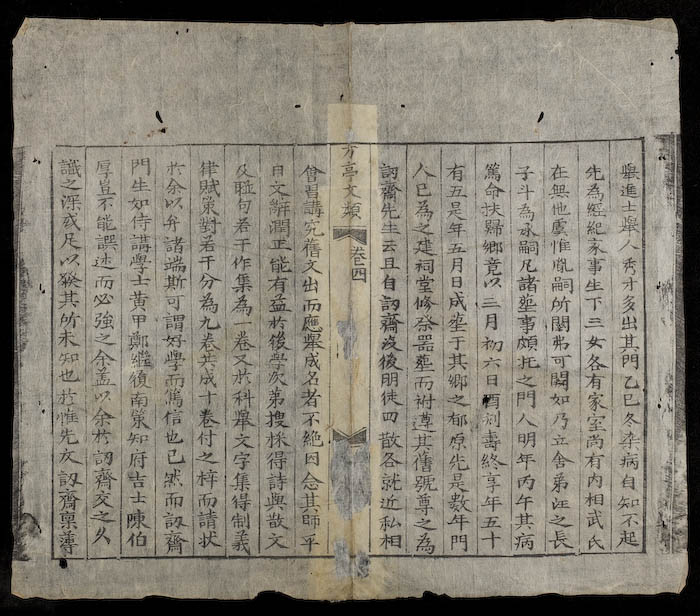 舉進士舉人秀才多出其門乙巳冬李病自知不起
先為經紀家事生下三女各有家室尚有内相武氏
在無他慮惟胤嗣所關弗可闕如乃立舍弟汪之長
子斗為承嗣凡諸塟事頗托之門人明年丙午其病
篤命扶歸鄉竟以三月初六日酉刻壽終享年五十
有五是年五月日成塟于其鄉之郁原先是數年門
人已為之建祠堂修祭器塟而祔遵其舊號尊之為
訒齋先生云且自訒齋没後朋徒四散各就近私相
方亭文類 卷四
會習講究舊文出而應舉成名者不絶因念其師平
日文辭潤正能有益於後學次第搜採得詩與散文
及聯句若干作集為一卷又於科舉文字集得制義
律賦策對若干分為九卷共成十卷付之梓而請状
於余以弁諸端斯可謂好學而篤信也已然而訒齋
門生如侍講學士黄甲鄭繼復南策知府吉士陳伯
厚豈不能譔述而必強之余盖以余於訒齋交之久
識之深或足以發其所未知也於惟先友訒齋稟薄